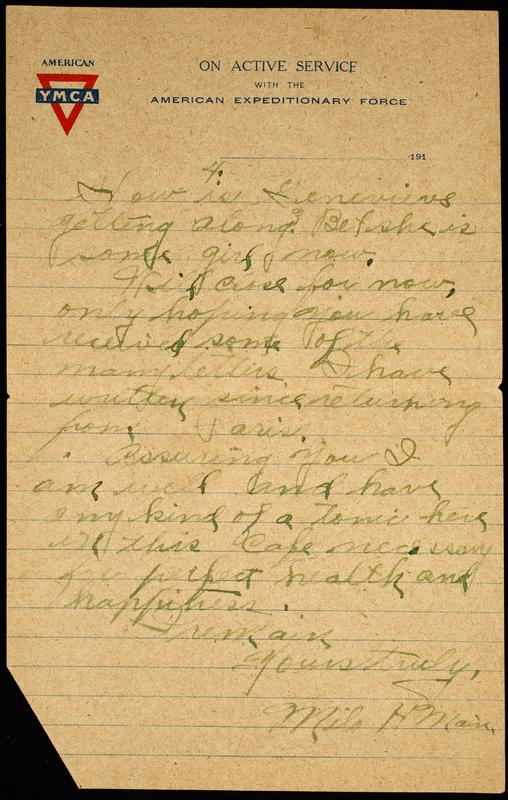 AMERICAN
YMCA
ON ACTIVE SERVICE
WITH THE
AMERICAN EXPEDITIONARY FORCE
191
4.
How is Genevieve
getting along? Bet she is
some girl now.
Will close for now,
only hoping you have
received some of the
many letters I have
written since returning
from Paris.
Assuring you I
am well and have
any kind of a tonic here
in this Cafe necessary
for perfect health and
happiness.
I remain
Yours truly,
Milo H Main